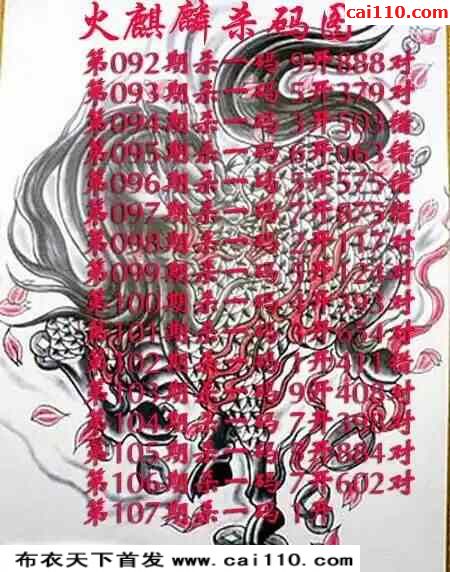 cai110.com
火麒麟杀码图
第092期杀一码 9开888对
第093期杀一码 5开379对
第094期杀一码 3开503错
第095期杀一码 6开063错
第096期杀一码 5开575错
第097期杀一码 7开875错
第098期杀一码 2开117对
第099期杀一码 开124对
第100期杀一码 开393对
第101期杀一码 开624对
第102期杀一码 1开411错
第103期杀一码 9开408对
第104期杀一码 7开39对
第105期杀一码 开884对
第106期杀一码 7开602对
第107期杀一码 1开
布衣天下首发 www.cai110.com